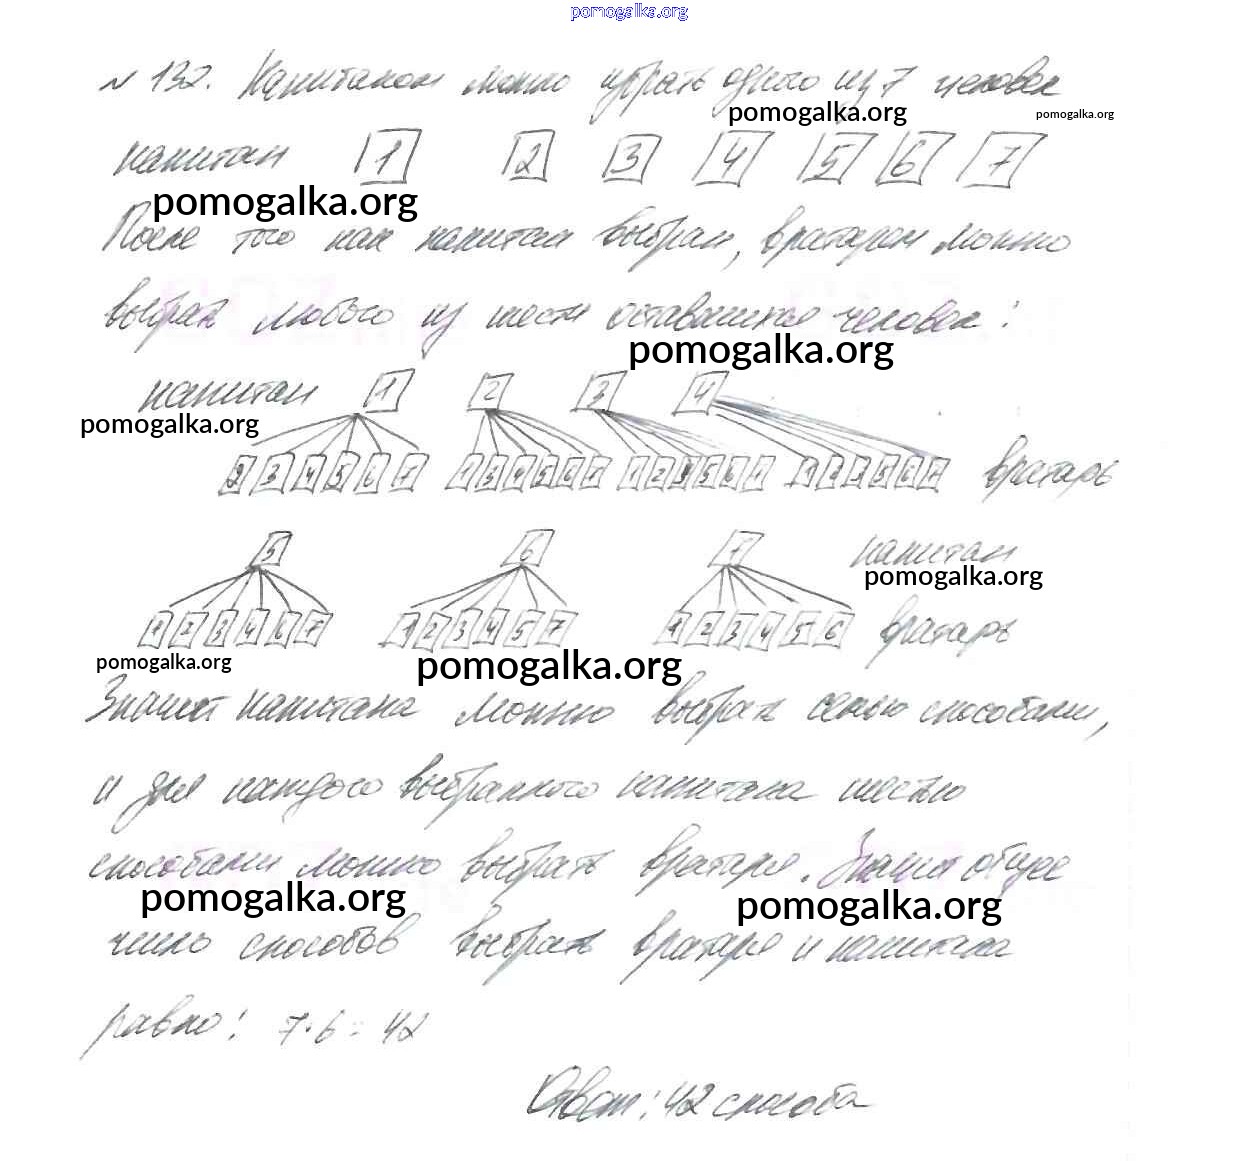 pomogalka.org
№ 132. Капитаном можно избрать одного из 7 человек
pomogalka.org pomogalka.org
капитан 1 2 3 4 5 6 7
pomogalka.org
После того как капитан выбран, вратарем можно
выбрать любого из шести оставшихся человек:
pomogalka.org
капитан 1 2 3 4
pomogalka.org
2 3 4 5 6 7 1 3 4 5 6 7 1 2 5 6 7 1 2 3 5 6 7 вратарь
5 6 7 капитан
pomogalka.org
1 2 3 4 6 7 1 2 3 4 5 7 1 2 3 4 5 6 вратарь
pomogalka.org pomogalka.org
Значит капитана можно выбрать семью способами,
и для каждого выбранного капитана шестью
способами можно выбрать вратаря. Значит общее
pomogalka.org pomogalka.org
число способов выбрать вратаря и капитана
равно: 7·6 = 42
Ответ: 42 способа